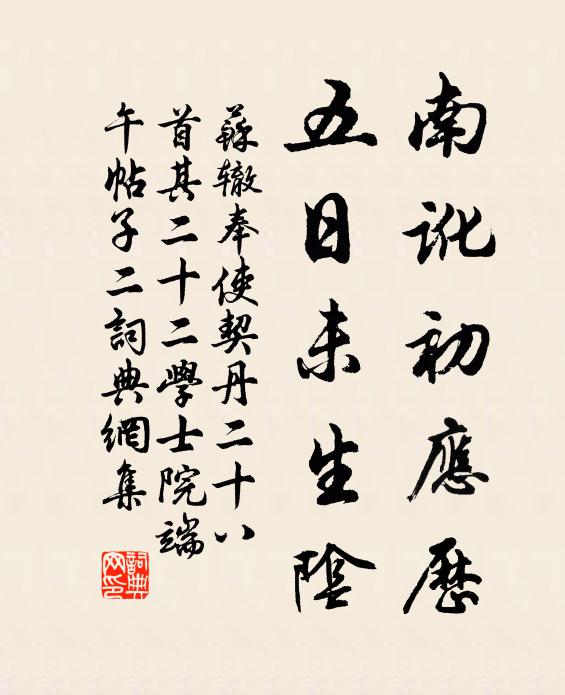 南訛初應歷
五日未生陰
蘇辙奉使契丹二十八
首其二十二學士院端
午帖子二詞典網集
詞典網印